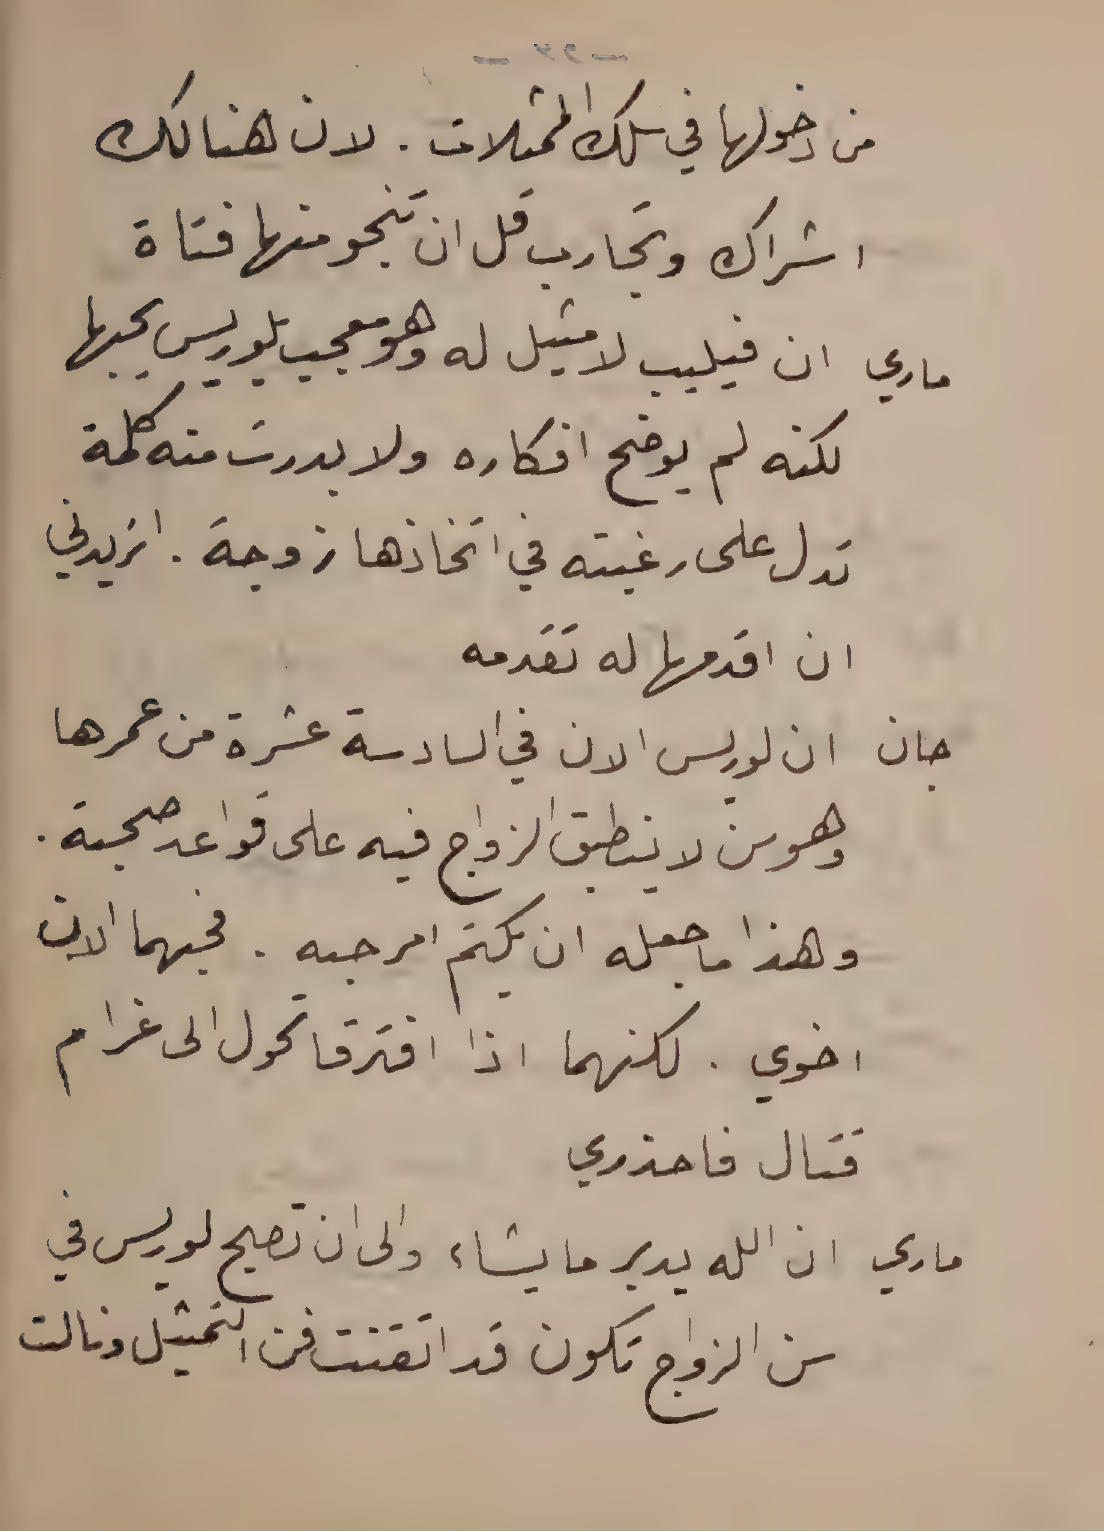 من دخولها في سلك الممثلات . لان هنالك
اشراك وتجارب قل ان تنجو منها فتاة
ماري ان فيليب لا مثيل له وهو معجب بلوريس يحبها
لكنه لم يوضح افكاره ولا بدرت منه كلمة
تدل على رغبته في اتخاذها زوجة . اتريدني
ان اقدمها له تقدمه
جان ان لوريس الان في السادسة عشرة من عمرها
وهو سن لا ينطبق الزواج فيه على قواعد صحية .
وهذا ما جعله ان يكتم امر حبه . فحبهما الان
اخوي . لكنهما اذا افترقا تحول الى غرام
قتال فاحذري
ماري ان الله يدبر ما يشاء والى ان تصبح لوريس في
سن الزواج تكون قد اتقنت فن التمثيل ونالت